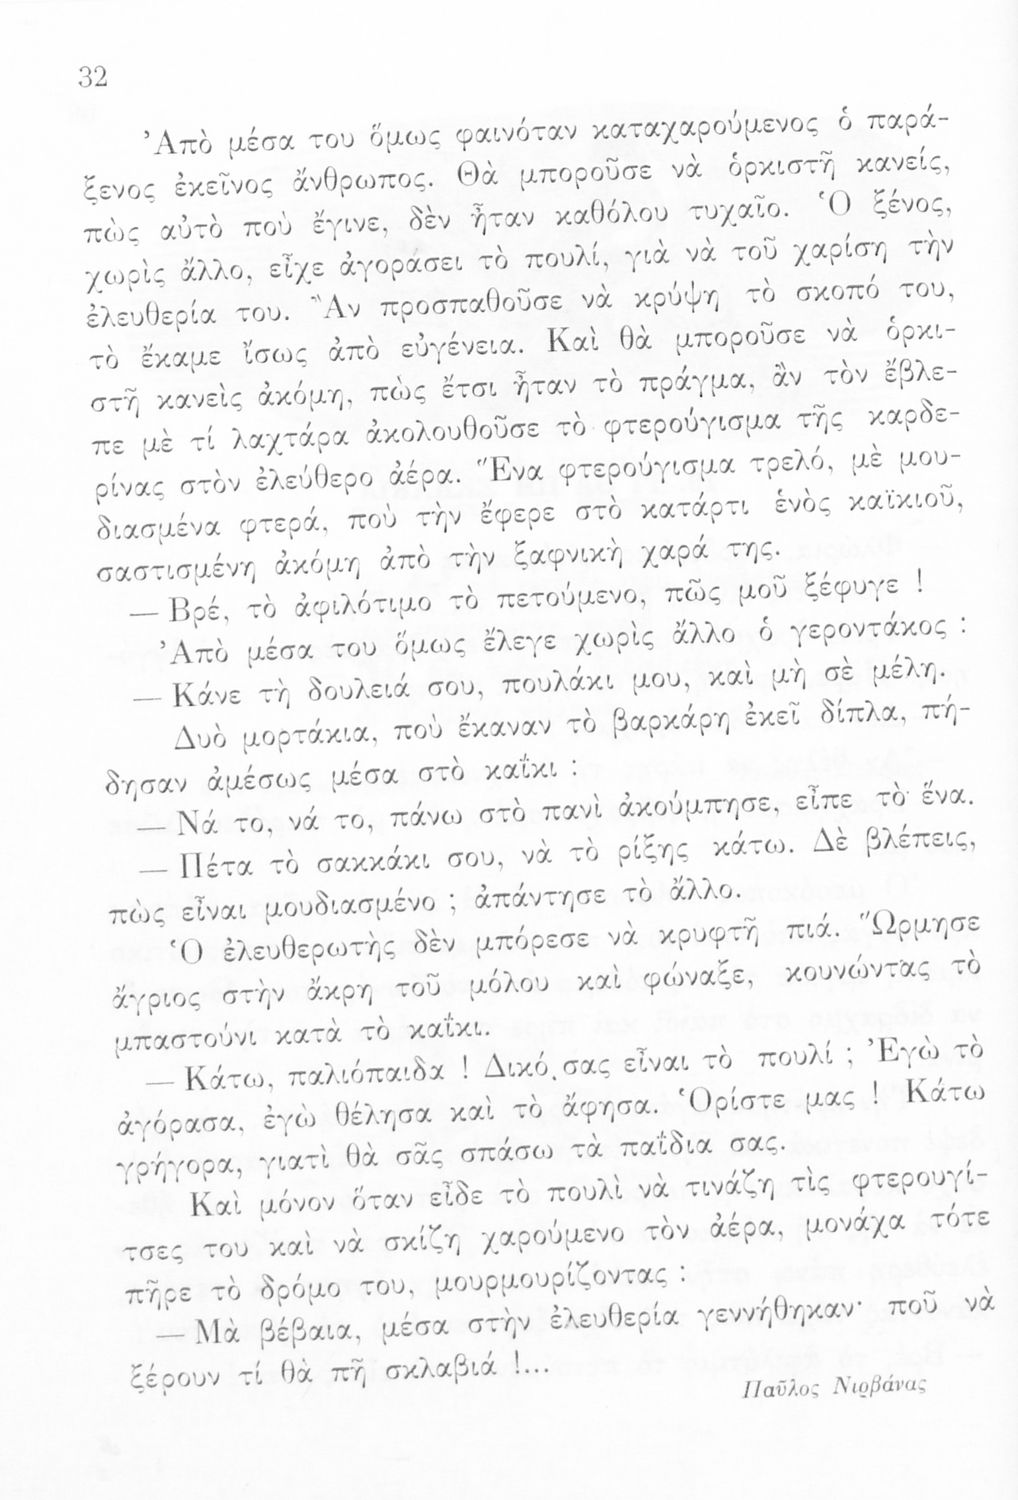 32
Ἀπὸ μέσα του ὅμως φαινόταν καταχαρούμενος ὁ παρά-
ξενος ἐκεῖνος ἄνθρωπος. Θὰ μποροῦσε νὰ ὁρκιστῆ κανείς,
πὼς αὐτὸ ποὺ ἔγινε, δὲν ἦταν καθόλου τυχαῖο. Ὁ ξένος,
χωρὶς ἄλλο, εἶχε ἀγοράσει τὸ πουλί, γιὰ νὰ τοῦ χαρίση τὴν
ἐλευθερία του. Ἂν προσπαθοῦσε νὰ κρύψη τὸ σκοπό του,
τὸ ἔκαμε ἴσως ἀπὸ εὐγένεια. Καὶ θὰ μποροῦσε νὰ ὁρκι-
στῆ κανεὶς ἀκόμη, πὼς ἔτσι ἦταν τὸ πράγμα, ἂν τὸν ἔβλε-
πε μὲ τί λαχτάρα ἀκολουθοῦσε τὸ φτερούγισμα τῆς καρδε-
ρίνας στὸν ἐλεύθερο ἀέρα. Ἕνα φτερούγισμα τρελό, μὲ μου-
διασμένα φτερά, ποὺ τὴν ἔφερε στὸ κατάρτι ἑνὸς καϊκιοῦ,
σαστισμένη ἀκόμη ἀπὸ τὴν ξαφνικὴ χαρά της.
— Βρέ, τὸ ἀφιλότιμο τὸ πετούμενο, πῶς μοῦ ξέφυγε !
Ἀπὸ μέσα του ὅμως ἔλεγε χωρὶς ἄλλο ὁ γεροντάκος :
— Κάνε τὴ δουλειά σου, πουλάκι μου, καὶ μὴ σὲ μέλη.
Δυὸ μορτάκια, ποὺ ἔκαναν τὸ βαρκάρη ἐκεῖ δίπλα, πή-
δησαν ἀμέσως μέσα στὸ καΐκι :
— Νά το, νά το, πάνω στὸ πανὶ ἀκούμπησε, εἶπε τὸ ἕνα.
— Πέτα τὸ σακκάκι σου, νὰ τὸ ρίξης κάτω. Δὲ βλέπεις,
πὼς εἶναι μουδιασμένο ; ἀπάντησε τὸ ἄλλο.
Ὁ ἐλευθερωτὴς δὲν μπόρεσε νὰ κρυφτῆ πιά. Ὥρμησε
ἄγριος στὴν ἄκρη τοῦ μόλου καὶ φώναξε, κουνώντας τὸ
μπαστούνι κατὰ τὸ καΐκι.
— Κάτω, παλιόπαιδα ! Δικό σας εἶναι τὸ πουλί ; Ἐγὼ τὸ
ἀγόρασα, ἐγὼ θέλησα καὶ τὸ ἄφησα. Ὁρίστε μας ! Κάτω
γρήγορα, γιατὶ θὰ σᾶς σπάσω τὰ παΐδια σας.
Καὶ μόνον ὅταν εἶδε τὸ πουλὶ νὰ τινάζη τὶς φτερουγί-
τσες του καὶ νὰ σκίζη χαρούμενο τὸν ἀέρα, μονάχα τότε
πῆρε τὸ δρόμο του, μουρμουρίζοντας :
— Μὰ βέβαια, μέσα στὴν ἐλευθερία γεννήθηκαν· ποῦ νὰ
ξέρουν τί θὰ πῆ σκλαβιά !...
Παῦλος Νιρβάνας